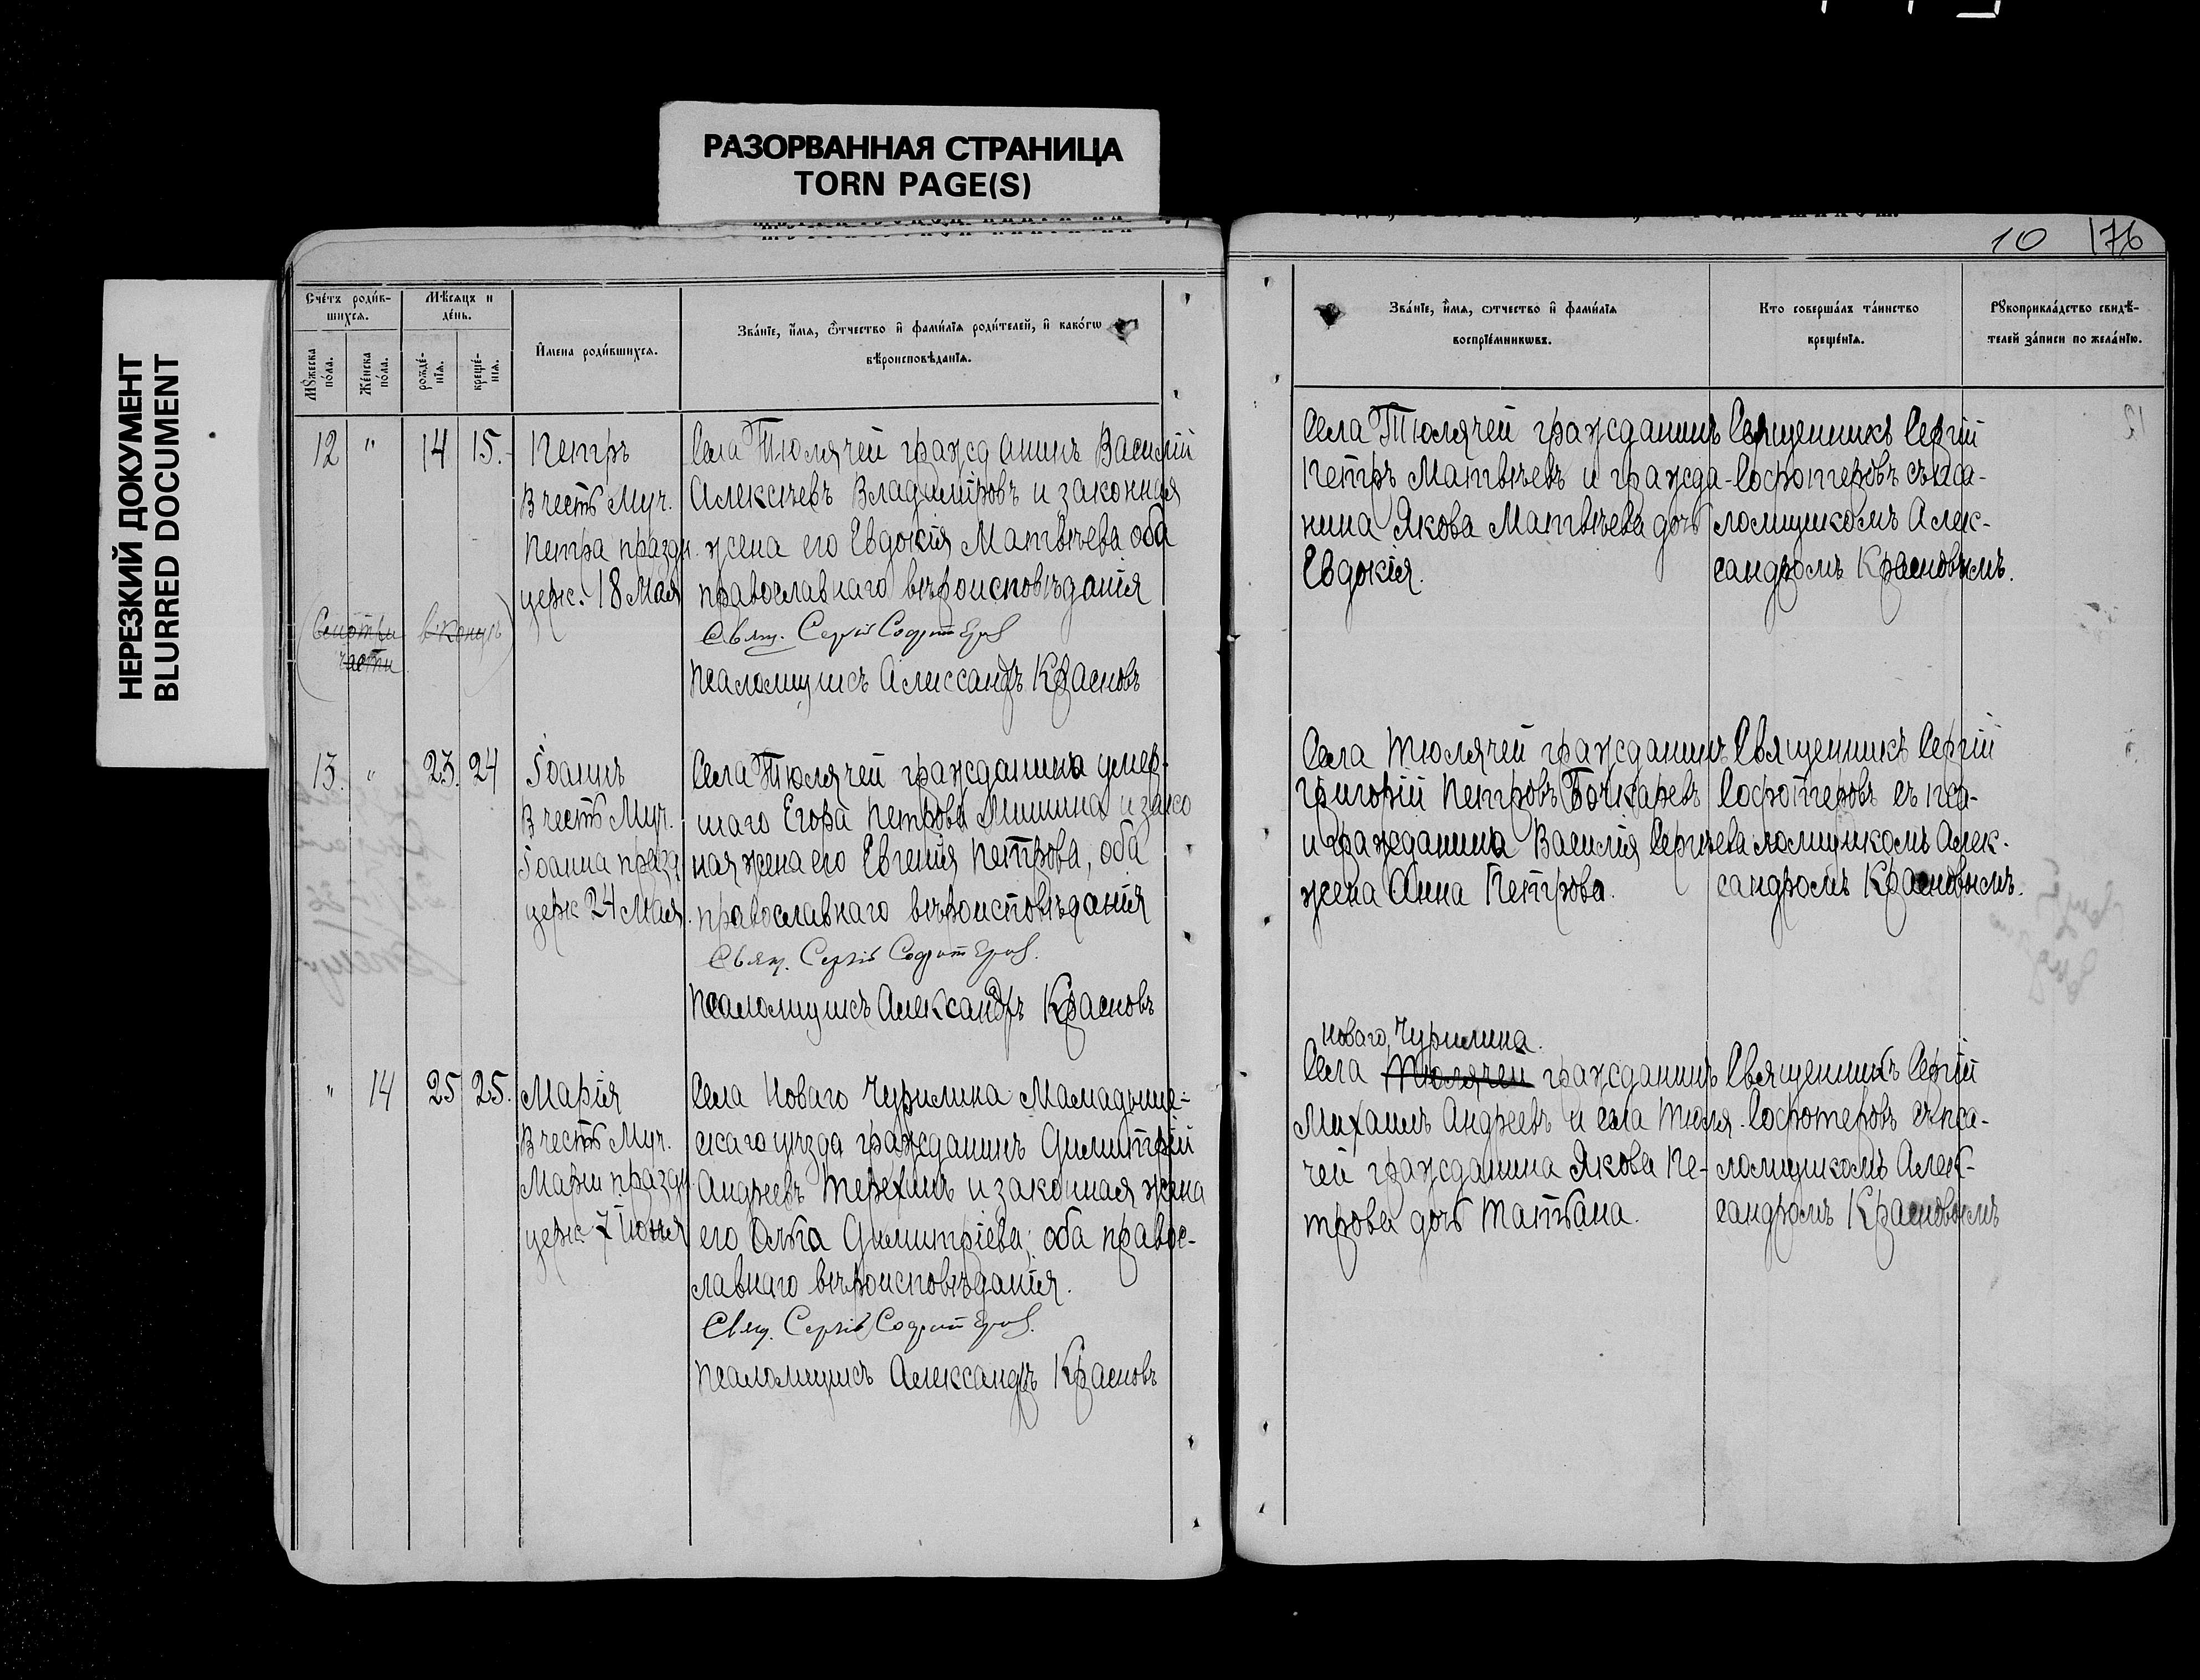 РАЗОРВАННАЯ СТРАНИЦА
TORN PAGE(S)
НЕРЕЗКИЙ ДОКУМЕНТ
BLURRED DOCUMENT
Счетъ родив-
шихся.
Мѣсяцъ и
день.
Мужеска
пола.
Женска
пола.
рожде-
нія.
креще-
нія.
Имена родившихся.
Званіе, имя, отчество и фамилія родителей, и какого
вѣроисповѣданія.
12 " 14 15.
Петръ
В честь Муч.
Петра праздн.
церк. 18 Мая
Села Тюлячей гражданинъ Василій
Алексѣевъ Владиміровъ и законная
жена его Евдокія Матвѣева оба
православнаго вѣроисповѣданія
Свящ. Сергій Софотеровъ
Псаломщикъ Александръ Красновъ
(Смотри в концѣ)
части
13. " 23. 24
Іоаннъ
В честь Муч.
Іоанна празд.
церк 24 Мая.
Села Тюлячей гражданина умер-
шаго Егора Петрова Мишина и зако
ная жена его Евгенія Петрова, оба
православнаго вѣроисповѣданія
Свящ. Сергій Софотеровъ.
Псаломщикъ Александръ Красновъ
" 14 25 25.
Марія
В честь Муч.
Маріи праздн.
церк. 7 Іюня
Села Новаго Чурилина Мамадыш-
скаго уѣзда гражданинъ Димитрій
Андреевъ Терехинъ и законная жена
его Ольга Димитріева; оба право-
славнаго вѣроисповѣданія.
Свящ. Сергій Софотеровъ.
Псаломщикъ Александръ Красновъ
10 176
Званіе, имя, отчество и фамилія
воспріемниковъ.
Кто совершалъ таинство
крещенія.
Рукоприкладство свидѣ-
телей записи по желанію.
Села Тюлячей гражданинъ
Петръ Матвѣевъ и гражда-
нина Якова Матвѣева дочь
Евдокія.
Священникъ Сергій
Софотеровъ съ пса-
ломщикомъ Алек-
сандромъ Красновымъ.
Села Тюлячей гражданинъ
Григорій Петровъ Бочкаревъ
и гражданина Василія Сергѣева
жена Анна Петрова.
Священникъ Сергій
Софотеровъ съ пса-
ломщикомъ Алек-
сандромъ Красновымъ.
Новаго Чурилина.
Села Тюлячей гражданинъ
Михаилъ Андреевъ и села Тюля-
чей гражданина Якова Пе-
трова дочь Татьяна.
Священникъ Сергій
Софотеровъ съ пса-
ломщикомъ Алек-
сандромъ Красновымъ